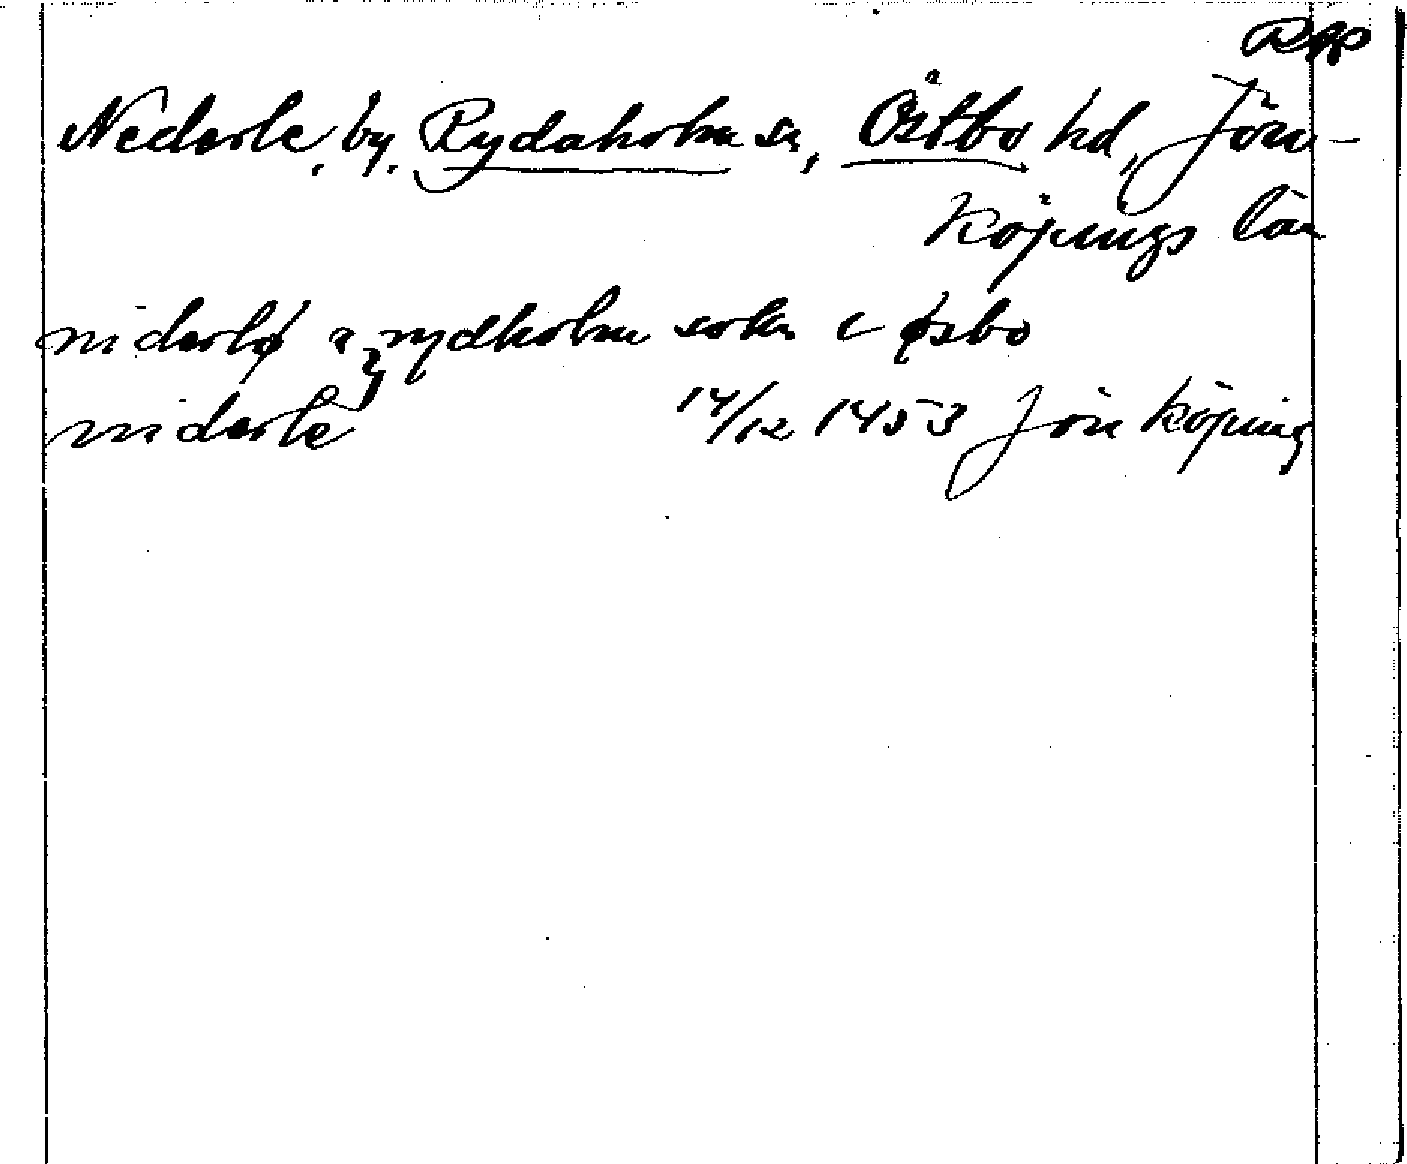 RAp
Nederle, by. Rydaholm sn, Östbo hd, Jön-
köpings län
niderlø a rydholm sokn i øsbo
niderle 14/12 1453 Jönköping